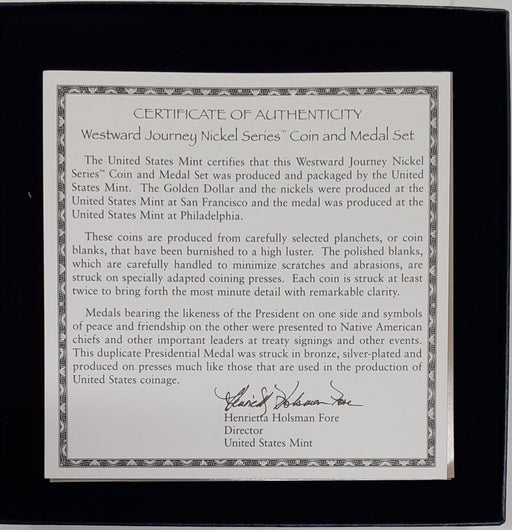 CERTIFICATE OF AUTHENTICITY
Westward Journey Nickel Series™ Coin and Medal Set
The United States Mint certifies that this Westward Journey Nickel
Series™ Coin and Medal Set was produced and packaged by the United
States Mint. The Golden Dollar and the nickels were produced at the
United States Mint at San Francisco and the medal was produced at the
United States Mint at Philadelphia.
These coins are produced from carefully selected planchets, or coin
blanks, that have been burnished to a high luster. The polished blanks,
which are carefully handled to minimize scratches and abrasions, are
struck on specially adapted coining presses. Each coin is struck at least
twice to bring forth the most minute detail with remarkable clarity.
Medals bearing the likeness of the President on one side and symbols
of peace and friendship on the other were presented to Native American
chiefs and other important leaders at treaty signings and other events.
This duplicate Presidential Medal was struck in bronze, silver-plated and
produced on presses much like those that are used in the production of
United States coinage.
Henrietta Holsman Fore
Henrietta Holsman Fore
Director
United States Mint